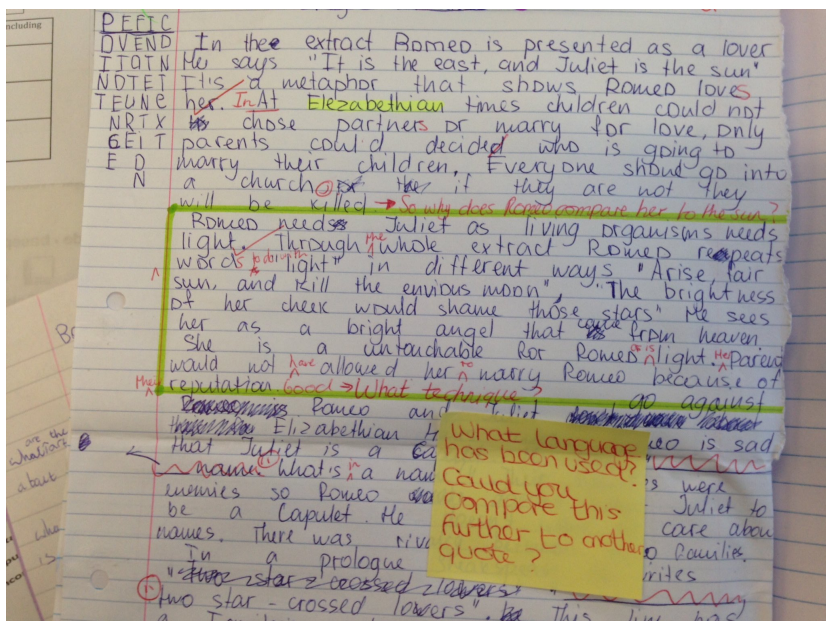 including
PEFIC
OVEND
IIATN
NDTET
TEUNE
NRTX
GEIT
E D
N
In the extract Romeo is presented as a lover
He says "It is the east, and Juliet is the sun"
It's a metaphor that shows Romeo loves
her. In At Elezabethian times children could not
chose partners or marry for love, only
parents could decided who is going to
marry their children. Everyone should go into
a church if they are not they
will be killed → So why does Romeo compare her to the sun?
Romeo needs Juliet as living organisms needs
light. Through the whole extract Romeo repeats
words to do with "light" in different ways "Arise, fair
sun, and kill the envious moon", "The brightness
of her cheek would shame those stars" He sees
her as a bright angel that came from heaven.
She is a untouchable for Romeo as is light. Her Parents
would not have allowed her to marry Romeo because of
they reputation. Good → What technique?
Romeo and Juliet go against
Elizabethian
that Juliet is a Ca
name. What's in a nam
enemies so Romeo
be a Capulet. He
names. There was riva
In a prologue
"two star-crossed lovers"
two star-crossed lovers". This line has
What language
has been used?
Could you
compare this
further to another
quote?
meo is sad
s were
Juliet to
care about
o families.
writes
are the
what are
about